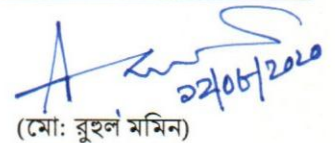 ১২/০৮/২০২০
(মো: রুহুল মমিন)